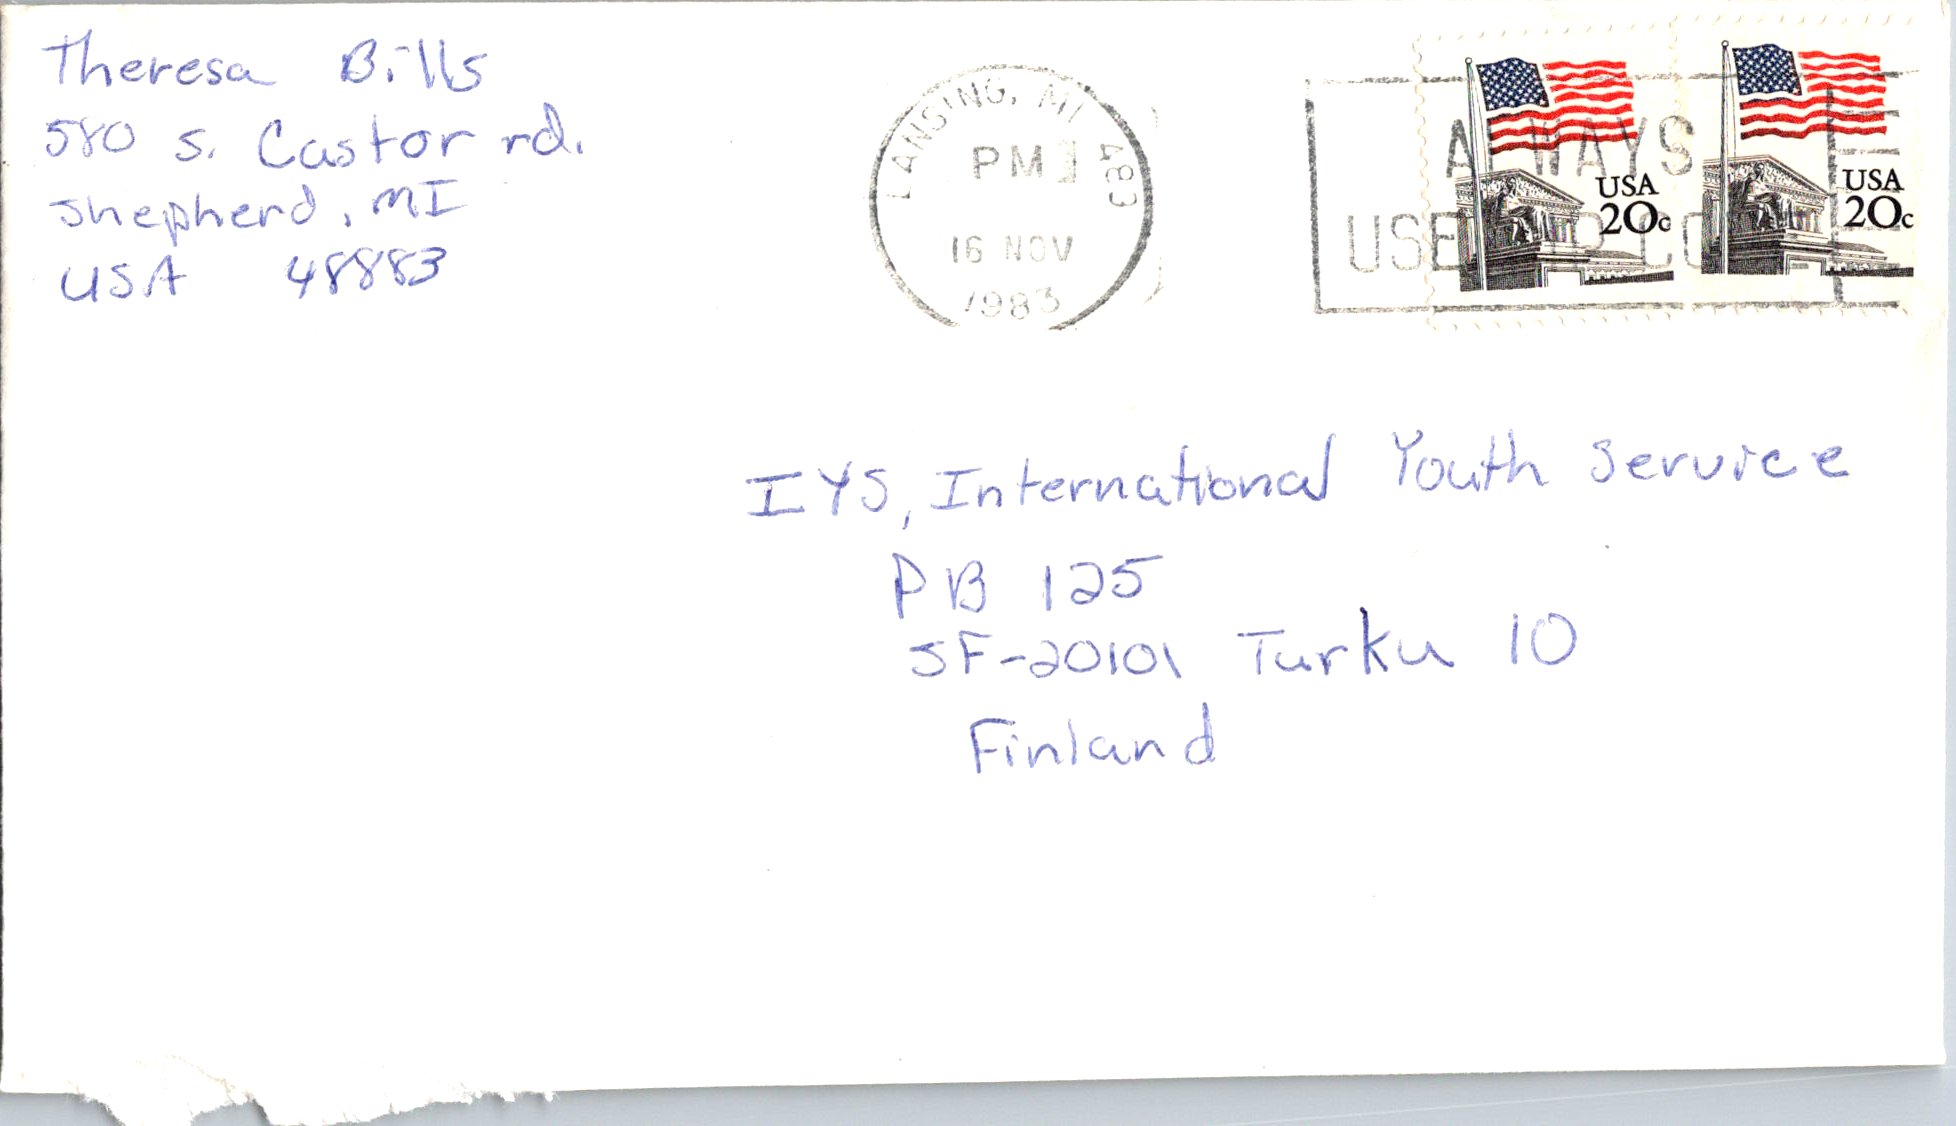 Theresa Bills
580 S. Castor rd.
Shepherd, MI
USA 48883
LANSING, MI 483
PM
16 NOV
1983
ALWAYS
USE ZIP CODE
USA
20c
USA
20c
IYS, International Youth Service
PB 125
SF-20101 Turku 10
Finland